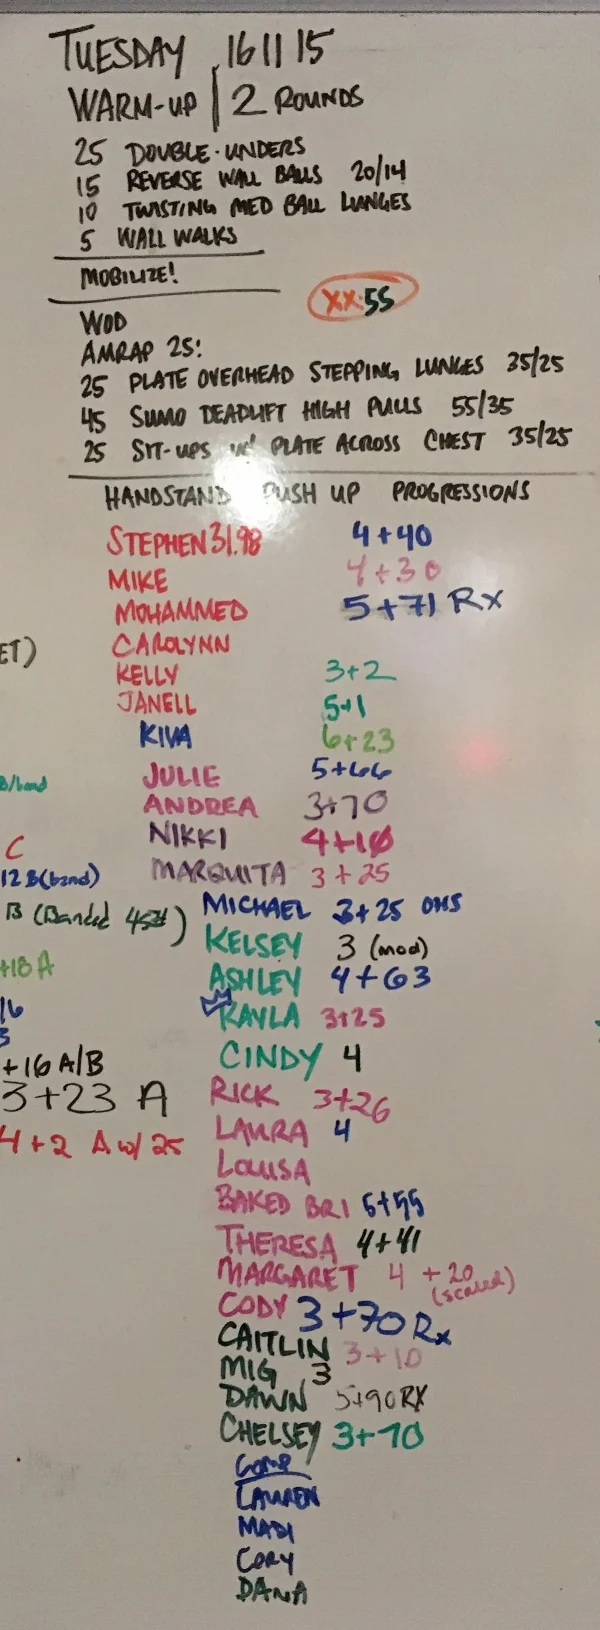 TUESDAY 161115
WARM-UP | 2 ROUNDS
25 DOUBLE-UNDERS
15 REVERSE WALL BALLS 20/14
10 TWISTING MED BALL LUNGES
5 WALL WALKS
MOBILIZE!
XX:55
WOD
AMRAP 25:
25 PLATE OVERHEAD STEPPING LUNGES 35/25
45 SUMO DEADLIFT HIGH PULLS 55/35
25 SIT-UPS w/ PLATE ACROSS CHEST 35/25
HANDSTAND PUSH UP PROGRESSIONS
STEPHEN 31.98 4+40
MIKE 4+30
MOHAMMED 5+71 Rx
ET) CAROLYNN
KELLY 3+2
JANELL 5+1
KIVA 6+23
B/band JULIE 5+66
ANDREA 3+70
C NIKKI 4+10
12 B(band) MARQUITA 3+25
B (Banded 45#) MICHAEL 3+25 OHS
KELSEY 3 (mod)
+18 A ASHLEY 4+63
16 KAYLA 3+25
3
+16 A/B CINDY 4
3+23 A RICK 3+26
4+2 A w/ 25 LAURA 4
LOUISA
BAKED BRI 5+55
THERESA 4+41
MARGARET 4 +20 (scaled)
CODY 3+70 Rx
CAITLIN 3+10
MIG 3
DAWN 5+90 RX
CHELSEY 3+70
LAUREN
MADI
CORY
DANA